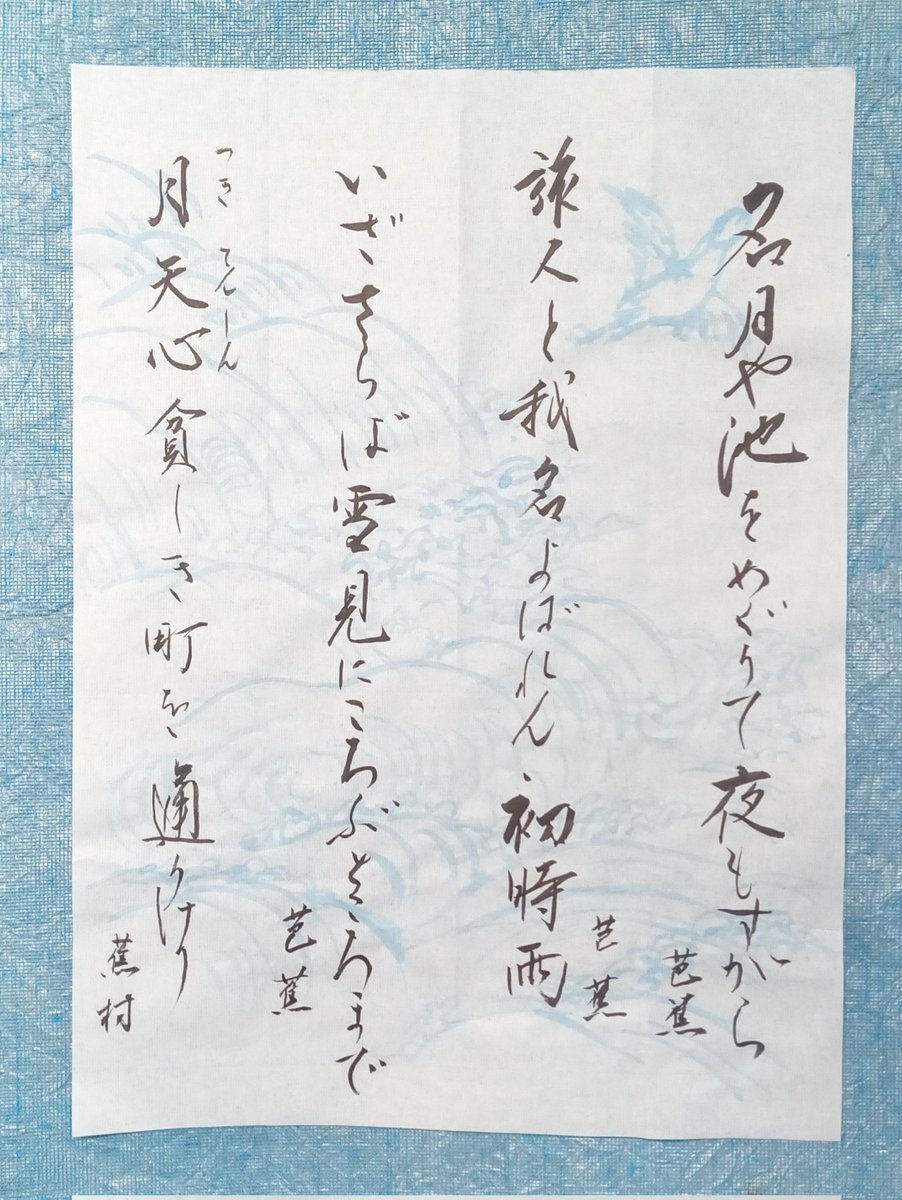 名月や池をめぐりて夜もすがら
芭蕉
旅人と我名よばれん初時雨
芭蕉
いざさらば雪見にころぶところまで
芭蕉
つき てんしん
月天心貧しき町を通りけり
蕉村